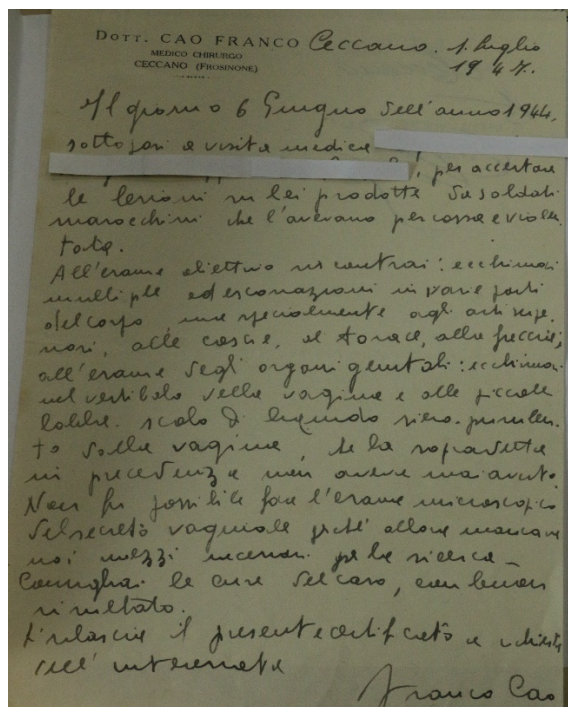 DOTT. CAO FRANCO Ceccano. 1. luglio
MEDICO CHIRURGO 1947.
CECCANO (FROSINONE)
Il giorno 6 Giugno dell'anno 1944,
sottoposi a visita medica
, per accertare
le lesioni in lei prodotte da soldati
marocchini che l'avevano percossa e violen
tata.
All'esame obiettivo riscontrai: ecchimosi
multiple ed escoriazioni in varie parti
del corpo, ma specialmente agli arti supe
riori, alle coscie, al torace, alla faccia;
all'esame degli organi genitali: ecchimosi
nel vestibolo della vagina e alle piccole
labbra. scolo di liquido siero-purulen
to dalla vagina, che la sopradetta
in precedenza non aveva mai avuto.
Non fu possibile fare l'esame microscopico
del secreto vaginale perché allora mancavano
i mezzi necessari per la ricerca -
Consigliai le cure del caso, con buon
risultato.
Si rilascia il presente certificato a richiesta
dell'interessata
Franco Cao